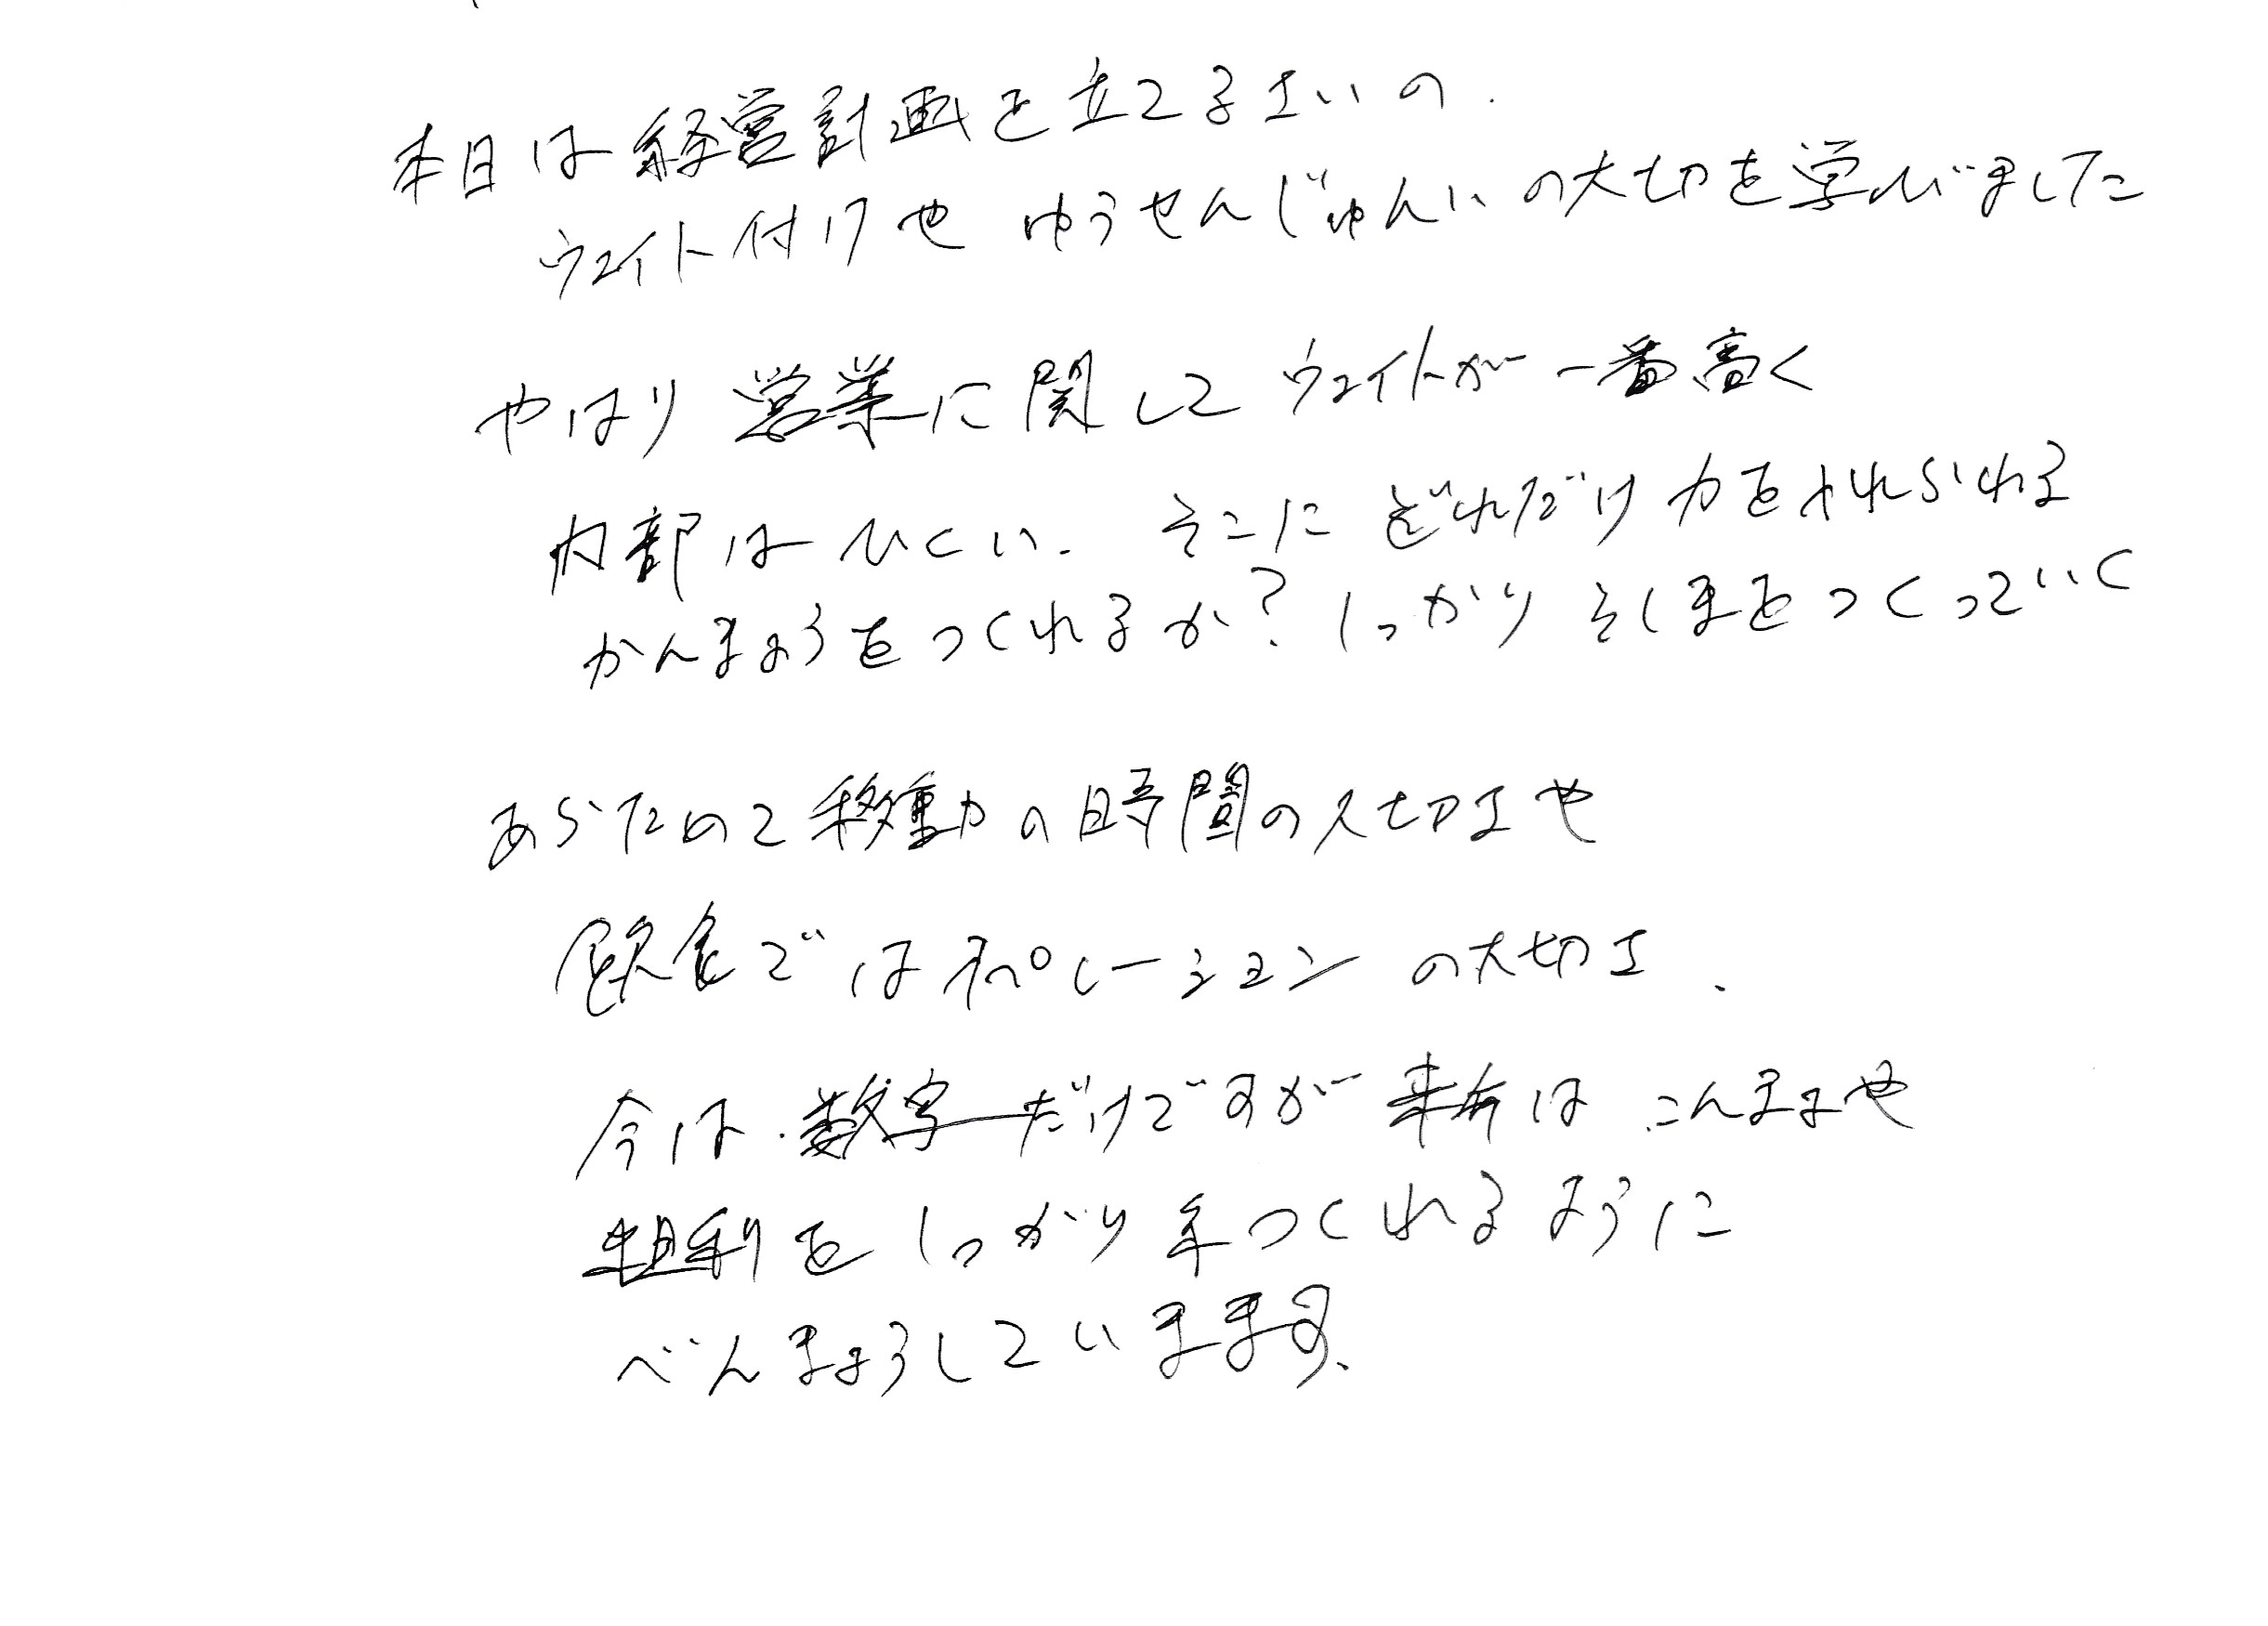 本日は経営計画を立てるさいの.
ウェイト付けや ゆうせんじゅんいの大切を学びました
やはり営業に関して ウェイトが一番高く
内部はひくい. そこに どれだけ力を入れられる
かんきょうをつくれるか? しっかり そしきをつくっていく
あらためて移動の時間の大切さや
飲食ではオペレーションの大切さ.
今は 数字だけですが 来年は こんきょや
粗利をしっかり をつくれるように
べんきょうしていきます、